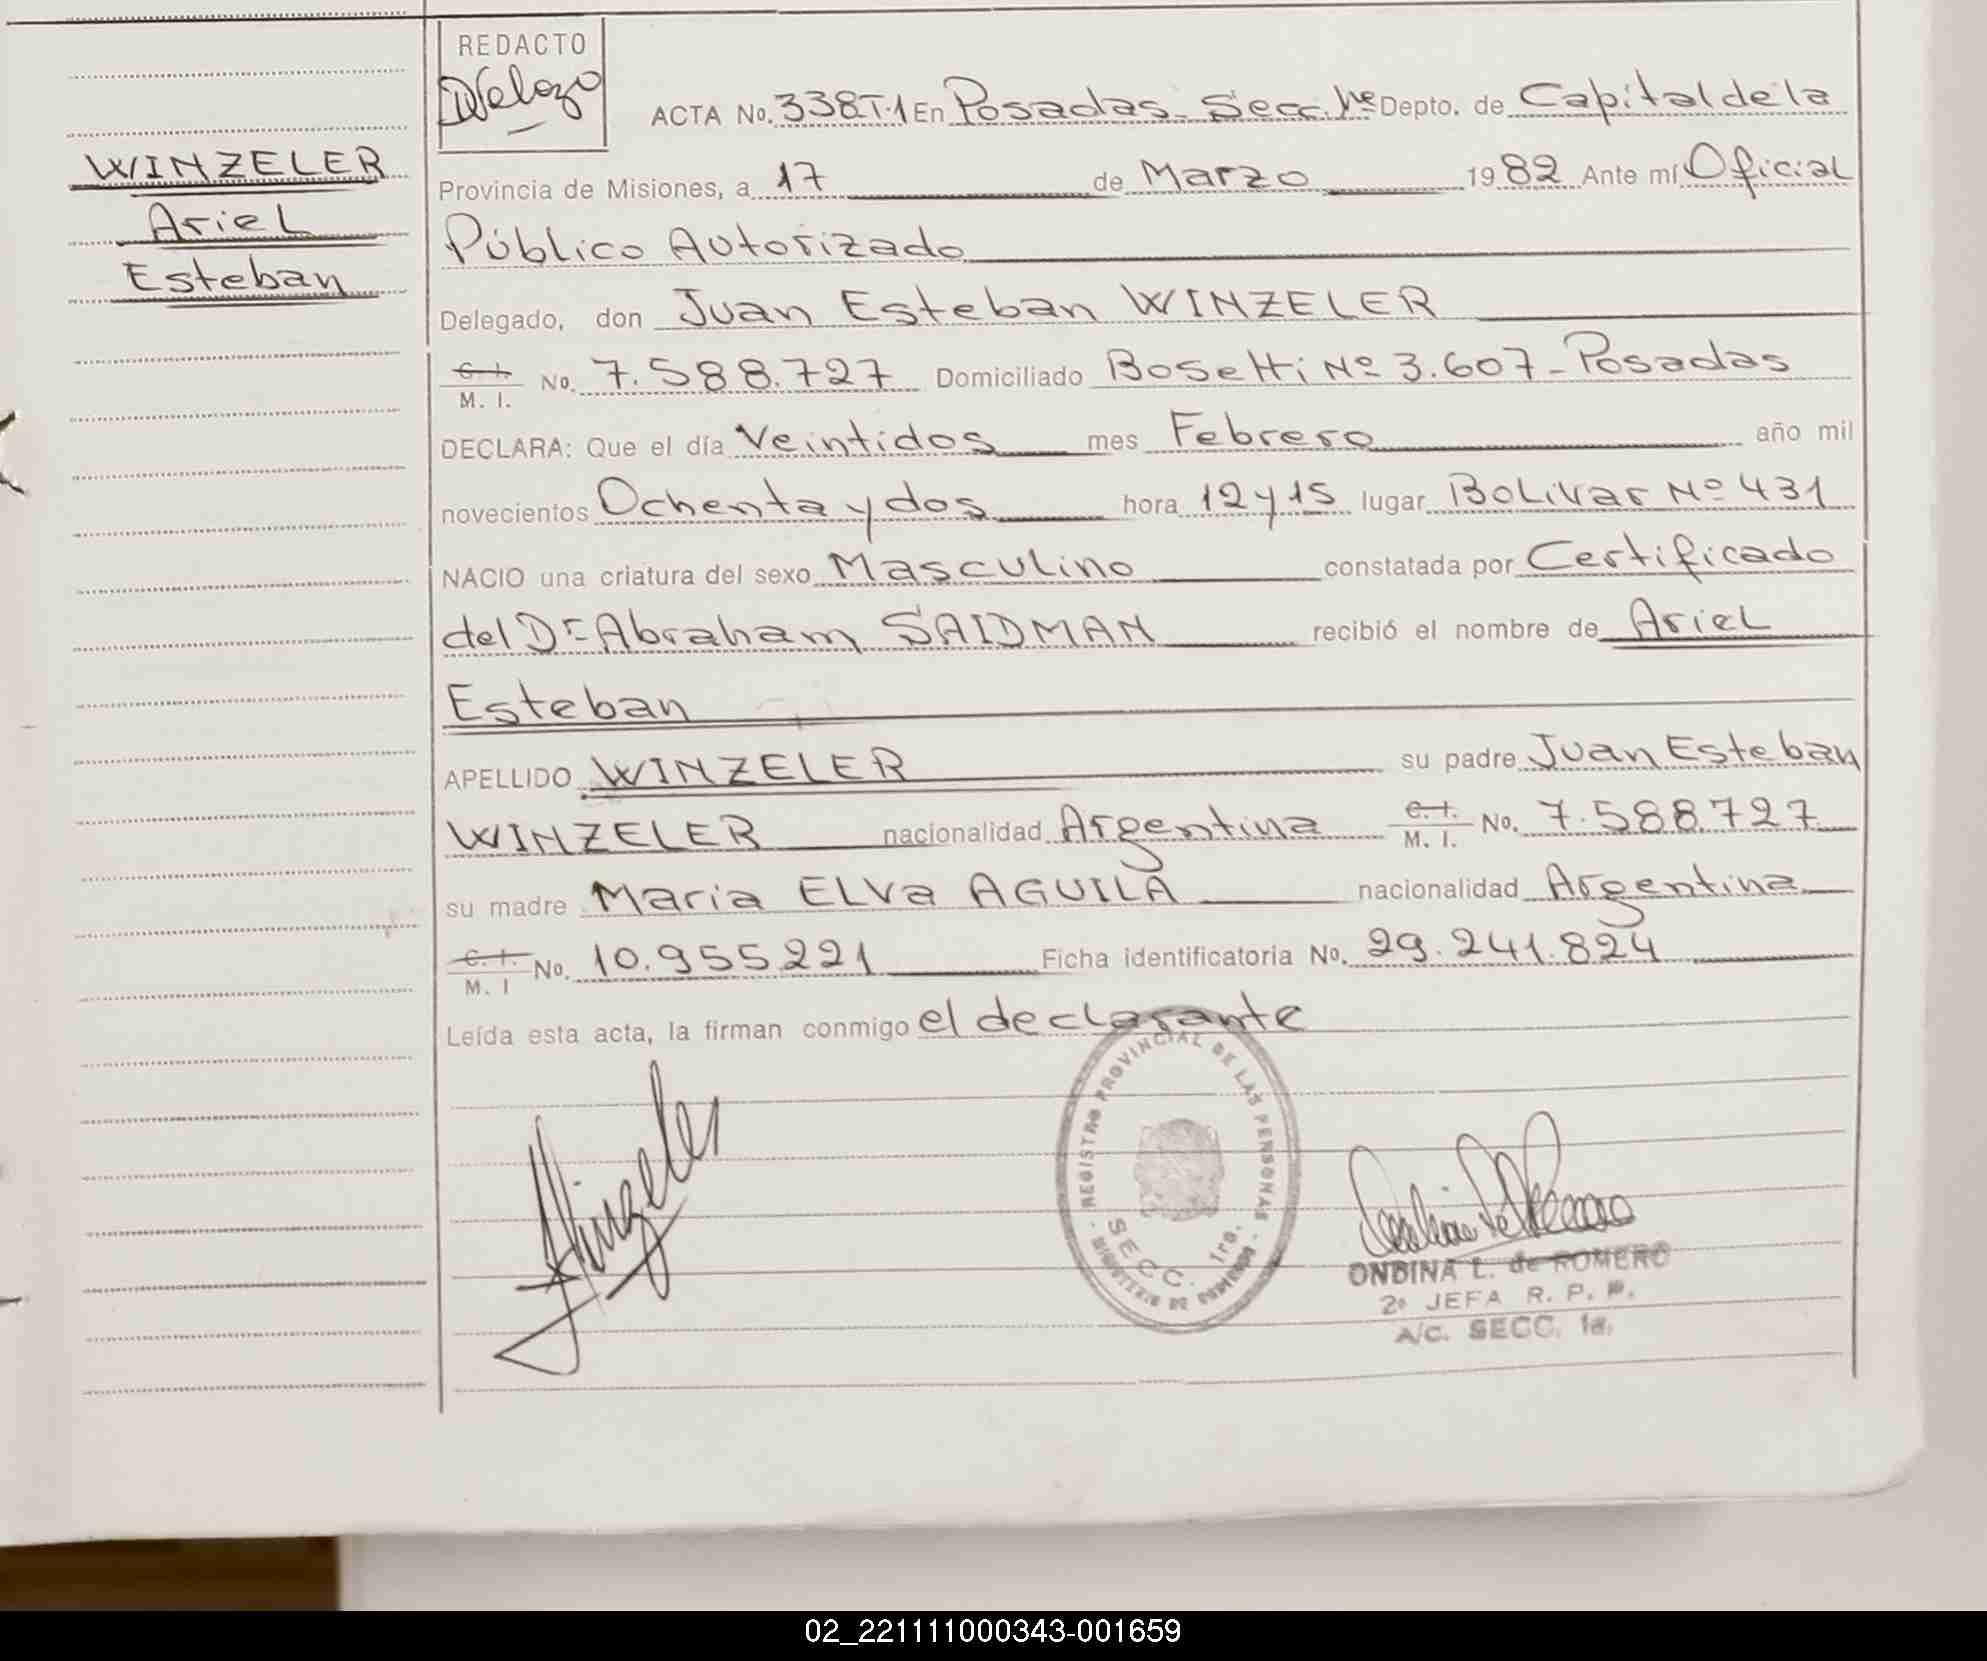 REDACTO
WINZELER
Ariel
Esteban
ACTA No. 338T.1 En Posadas - Secc. 1ra Depto. de Capital de la
Provincia de Misiones, a 17 de Marzo 1982 Ante mí Oficial
Público Autorizado
Delegado, don Juan Esteban WINZELER
C. I. M. I. No. 7.588.727 Domiciliado Bosetti Nº 3.607 - Posadas
DECLARA: Que el día Veintidos mes Febrero año mil
novecientos Ochenta y dos hora 12 y 15 lugar Bolivar Nº 431
NACIO una criatura del sexo Masculino constatada por Certificado
del Dr Abraham SAIDMAN recibió el nombre de Ariel
Esteban
APELLIDO WINZELER su padre Juan Esteban
WINZELER nacionalidad Argentina C. I. M. I. No. 7.588.727
su madre Maria ELVA AGUILA nacionalidad Argentina
C. I. M. I No. 10.955.221 Ficha identificatoria No. 29.241.824
Leída esta acta, la firman conmigo el declarante
REGISTRO PROVINCIAL DE LAS PERSONAS
SECC. 1ra.
MINISTERIO DE GOBIERNO
Winzeler
ONDINA L. de ROMERO
2º JEFA R. P. P.
A/C. SECC. 1a.
02_221111000343-001659